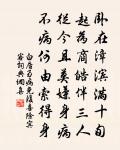 卧在漳濱滿十旬
起為商皓伴三人
從今且莫嫌身病
不病何由索得身
白居易病免後喜除賓
客詞典網書